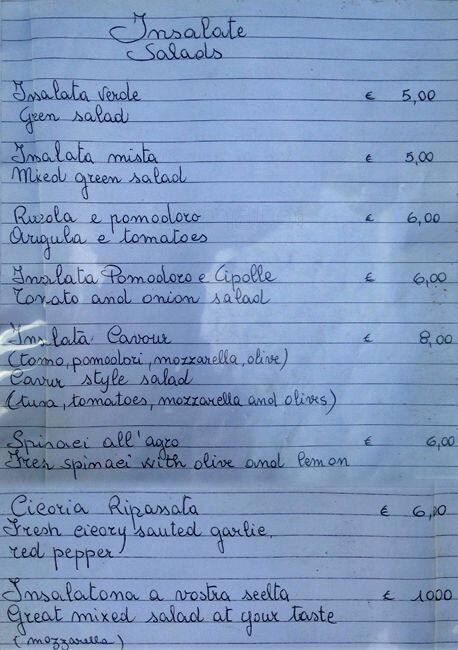 Insalate
Salads
Insalata verde € 5,00
Gren salad
Insalata mista € 5,00
Mixed green salad
Rucola e pomodoro € 6,00
Arugula e tomatoes
Insalata Pomodoro e Cipolle € 6,00
Tomato and onion salad
Inslata Cavour € 8,00
(tonno, pomodori, mozzarella, olive)
Cavur style salad
(tuna, tomatoes, mozzarella and olives)
Spinaci all'agro € 6,00
Fresh spinaci with olive and lemon
Cicoria Ripassata € 6,00
Fresh cicory sauted garlic,
red pepper
Insalatona a vostra scelta € 1000
Great mixed salad at your taste
(mozzarella)